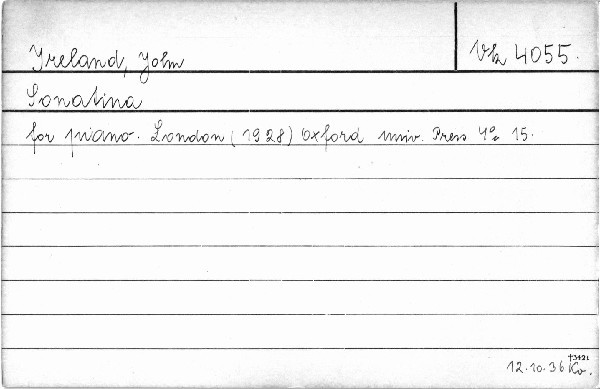 Ireland, John
Vk 4055.
Sonatina
for piano. London (1928) Oxford univ. Press 4° 15.
12.10.36 Ko.